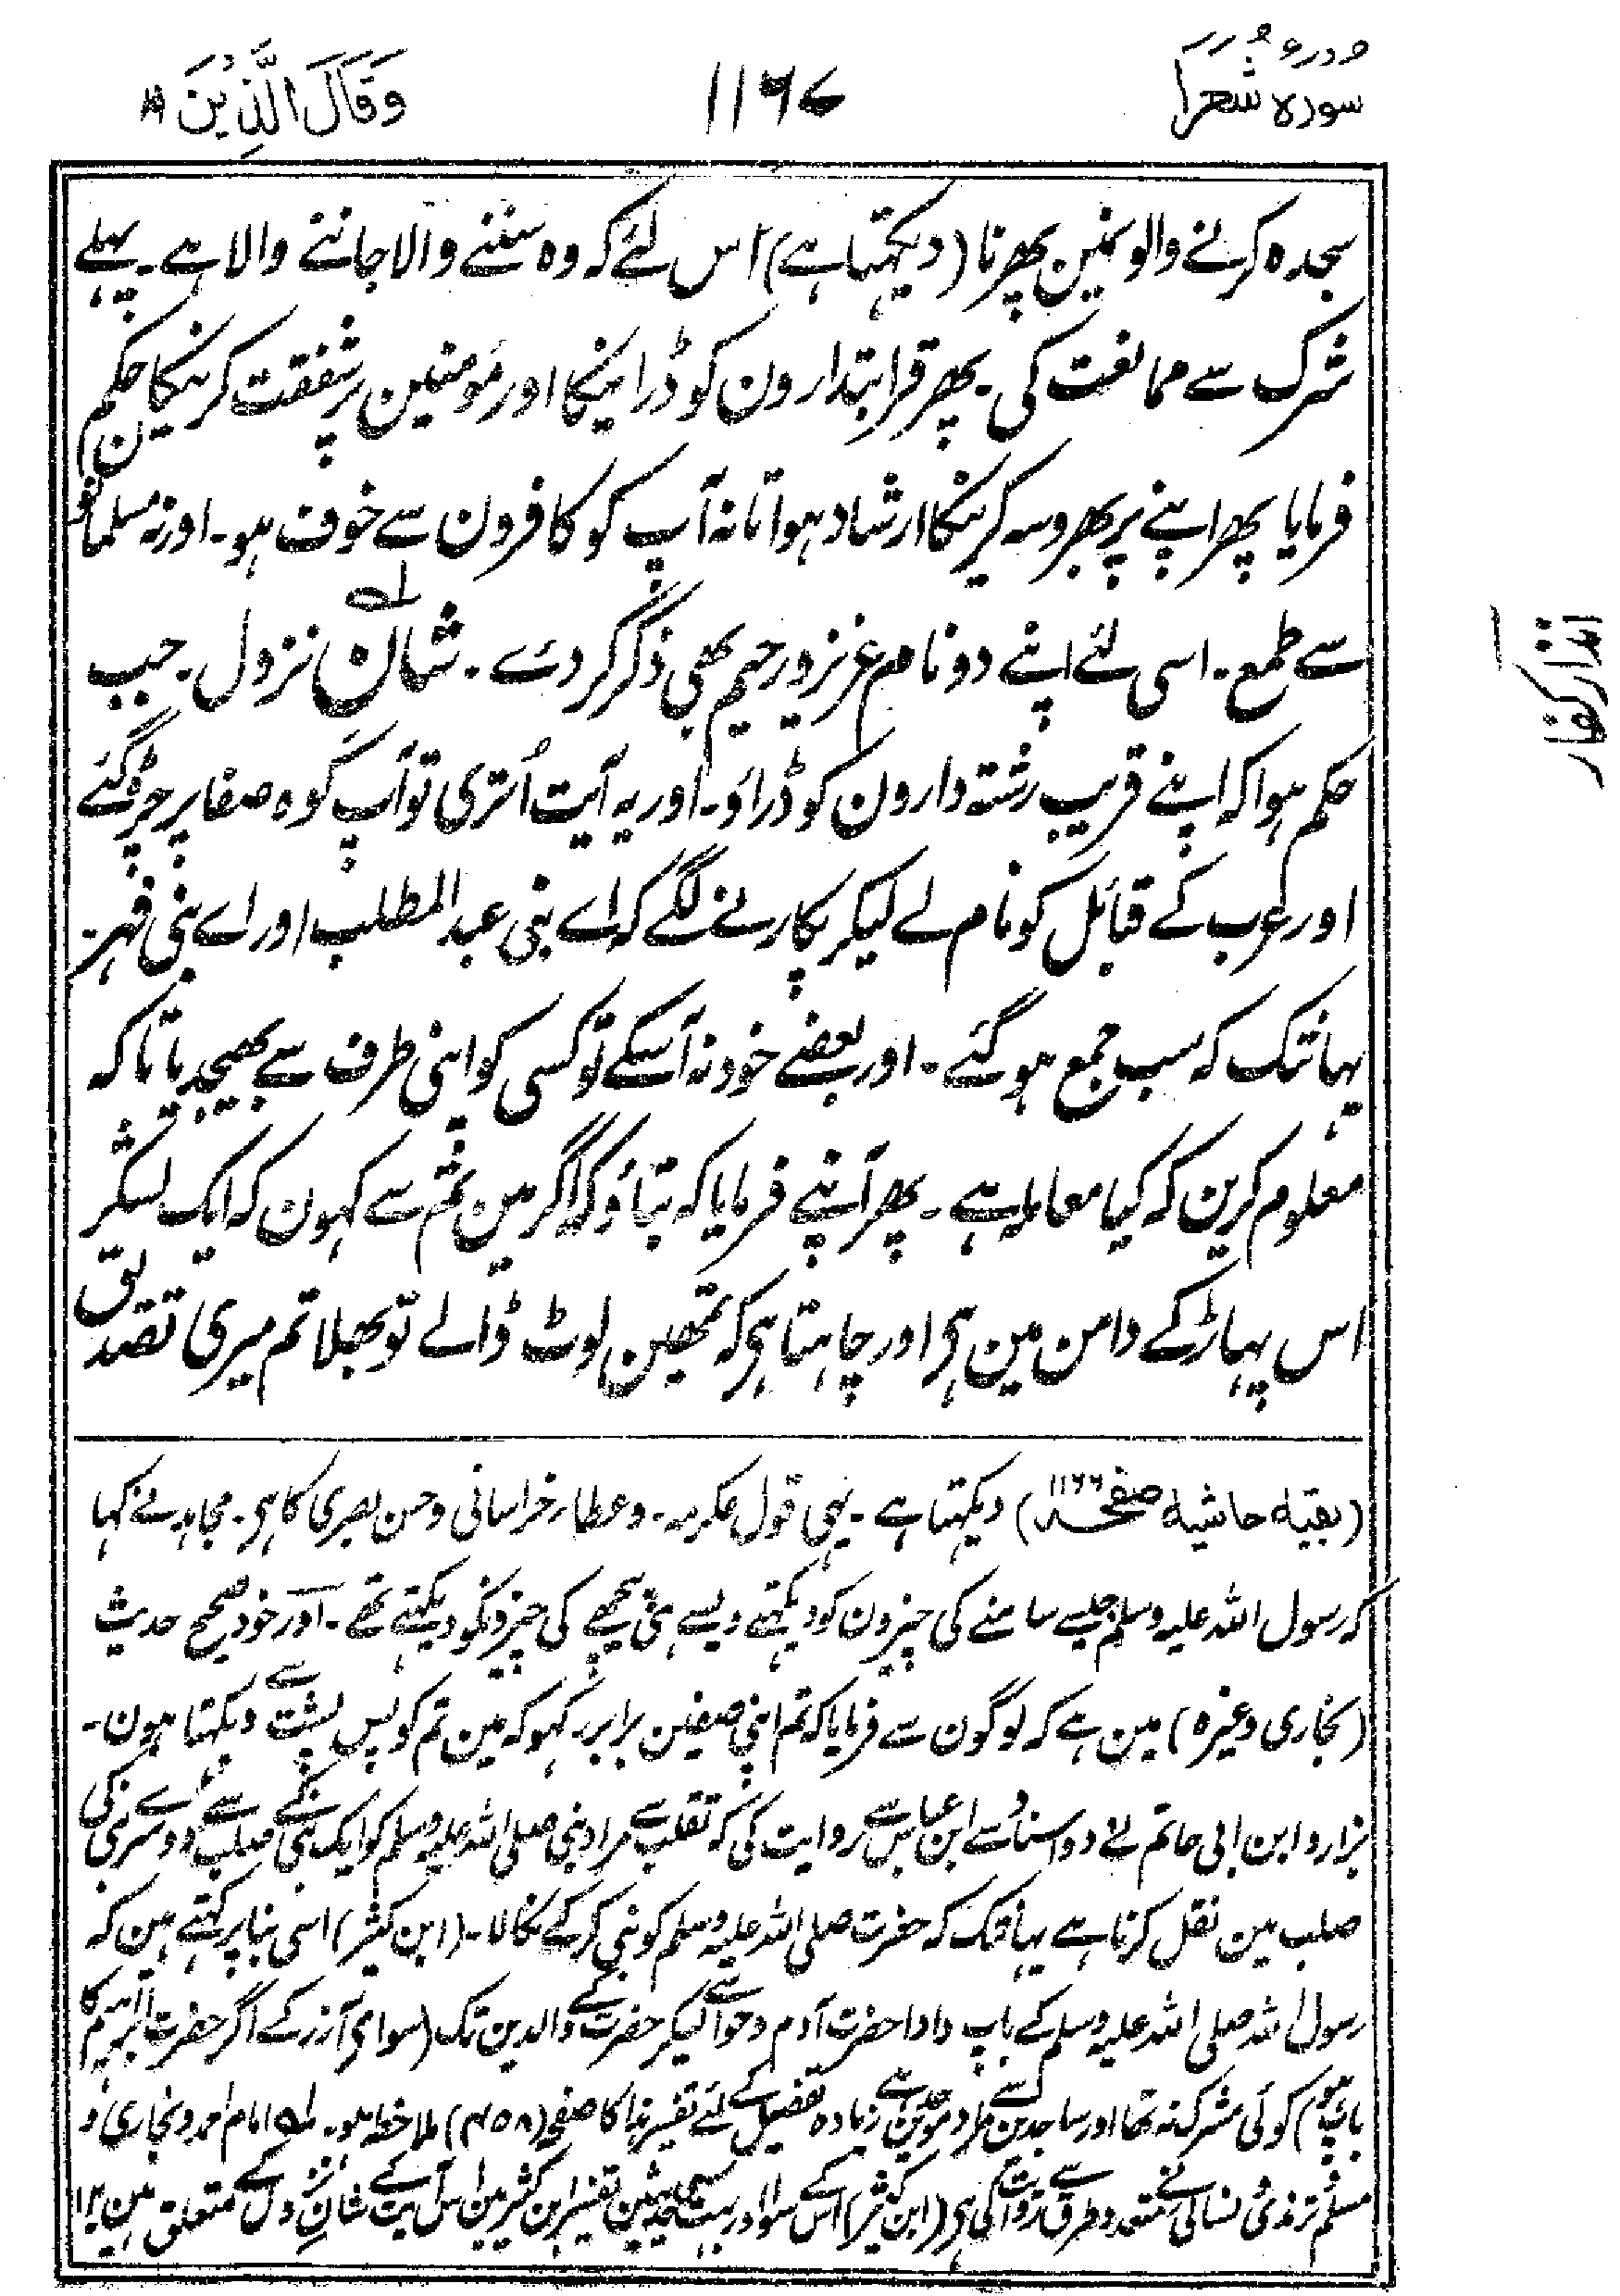 سورہ شعرا
۱۱۶۷
وَقَالَ الَّذِيْنَ ۱۹
سجدہ کرنے والو نمین پھرنا (دیکھتا ہے) اس لئے کہ وہ سننے والا جاننے والا ہے۔ پہلے
شرک سے ممانعت کی۔ پھر قرابتدارون کو ڈرانیکا اور مومنین پر شفقت کرنیکا حکم
فرمایا پھر اپنے پر بھروسہ کرنیکا ارشاد ہوا تا نہ آپ کو کافرون سے خوف ہو۔ اور نہ مسلمانون
سے طمع۔ اسی لئے اپنے دو نام عزیز و رحیم بھی ذکر کر دئے۔ شان نزول۔ جب
حکم ہوا کہ اپنے قریب رشتہ دارون کو ڈراؤ۔ اور یہ آیت اُتری تو آپ کوہ صفا پر چڑھ گئے
اور عرب کے قبائل کو نام لے لیکر پکارنے لگے کہ اے بنی عبد المطلب اور اے بنی فہر۔
یہانتک کہ سب جمع ہو گئے۔ اور بعضے خود نہ آسکے تو کسی کو اپنی طرف سے بھیجدیا تاکہ
معلوم کرین کہ کیا معاملہ ہے۔ پھر آپنے فرمایا کہ بتاؤ کہ اگر مین تم سے کہون کہ ایک لشکر
اس پہاڑ کے دامن مین ہی اور چاہتا ہی کہ تمھین لوٹ ڈالے تو بھلا تم میری تصدیق
انذار کفار
(بقیہ حاشیہ صفحہ ۱۱۶۶) دیکھتا ہے۔ یہی قول عکرمہ۔ و عطار خراسانی و حسن بصری کا ہی۔ مجاہد نے کہا
کہ رسول اللہ علیہ وسلم جیسے سامنے کی چیزون کو دیکھتے ویسے ہی پیچھے کی چیزونکو دیکھتے تھے۔ اور خود صحیح حدیث
(بخاری وغیرہ) مین ہے کہ لوگون سے فرمایا کہ تم اپنی صفین برابر رکھو کہ مین تم کو پس پشت سے دیکھتا ہون۔
بزار و ابن ابی حاتم نے دو اسناد سے ابن عباس سے روایت کی کہ تقلب سے مراد نبی صلی اللہ علیہ وسلم کو ایک نبی کے صلب سے دوسرے نبی کی
صلب مین نقل کرنا ہے یہانتک کہ حضرت صلی اللہ علیہ وسلم کو نبی کر کے نکالا۔ (ابن کثیر) اسی بنا پر کہتے ہین کہ
رسول اللہ صلی اللہ علیہ وسلم کے باپ دادا حضرت آدم و حوا سے لیکر حضرت کے والدین تک (سوای آزر کے اگر حضرت ابراہیم کا
باپ ہو) کوئی مشرک نہ تھا اور ساجدین سے مراد موحدین ہے زیادہ تفصیل کے لئے تفسیر ہذا کا صفحہ (۴۵۸) ملاحظہ ہو۔ لہ امام احمد و بخاری و
مسلم ترمذی نسائی نے متعدد طرق سے روایت کی ہی (ابن کثیر) اس کے سوا اور بہت سی حدیثین تفسیر ابن کثیر مین اس آیت کے شان نزول کے متعلق ہین ۱۲